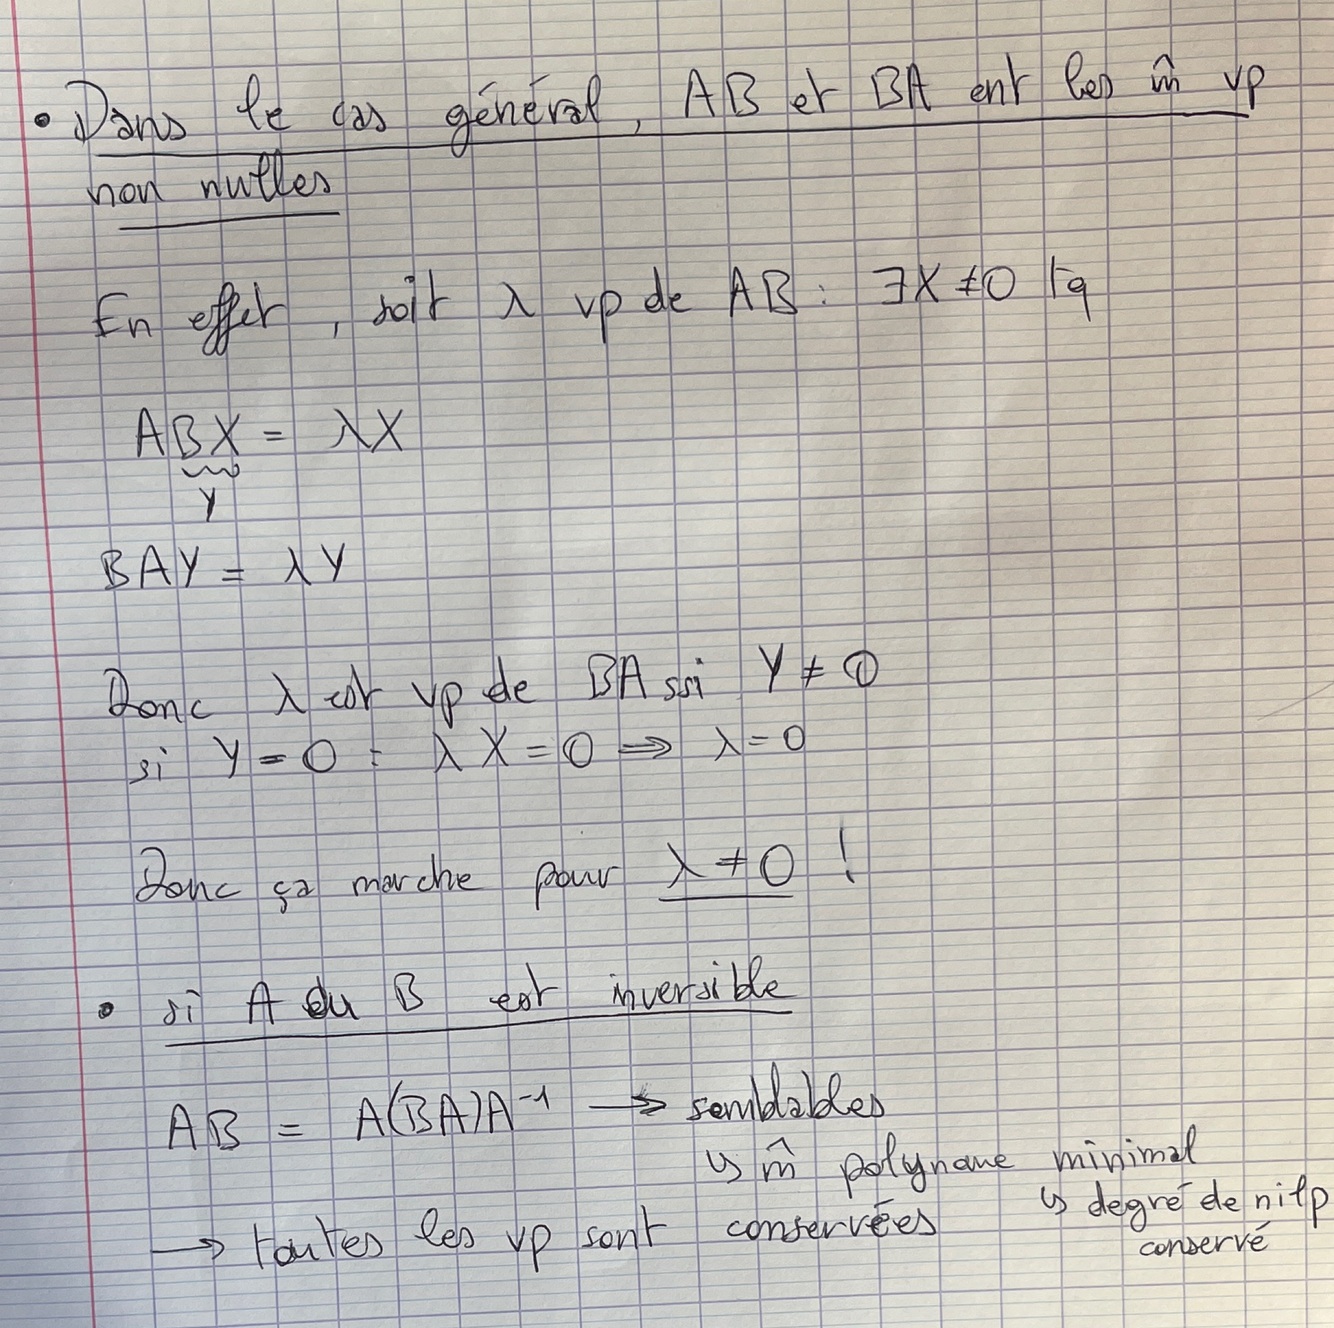 • Dans le cas général, AB et BA ont les m̂ vp
non nulles
En effet, soit λ vp de AB : ∃X ≠ 0 tq
ABX = λX
Y
BAY = λY
Donc λ est vp de BA ssi Y ≠ 0
si Y = 0 : λX = 0 ⟹ λ = 0
Donc ça marche pour λ ≠ 0 !
• si A ou B est inversible
AB = A(BA)A⁻¹ → semblables
↳ m̂ polynome minimal
↳ degré de nilp
conservé
→ toutes les vp sont conservées